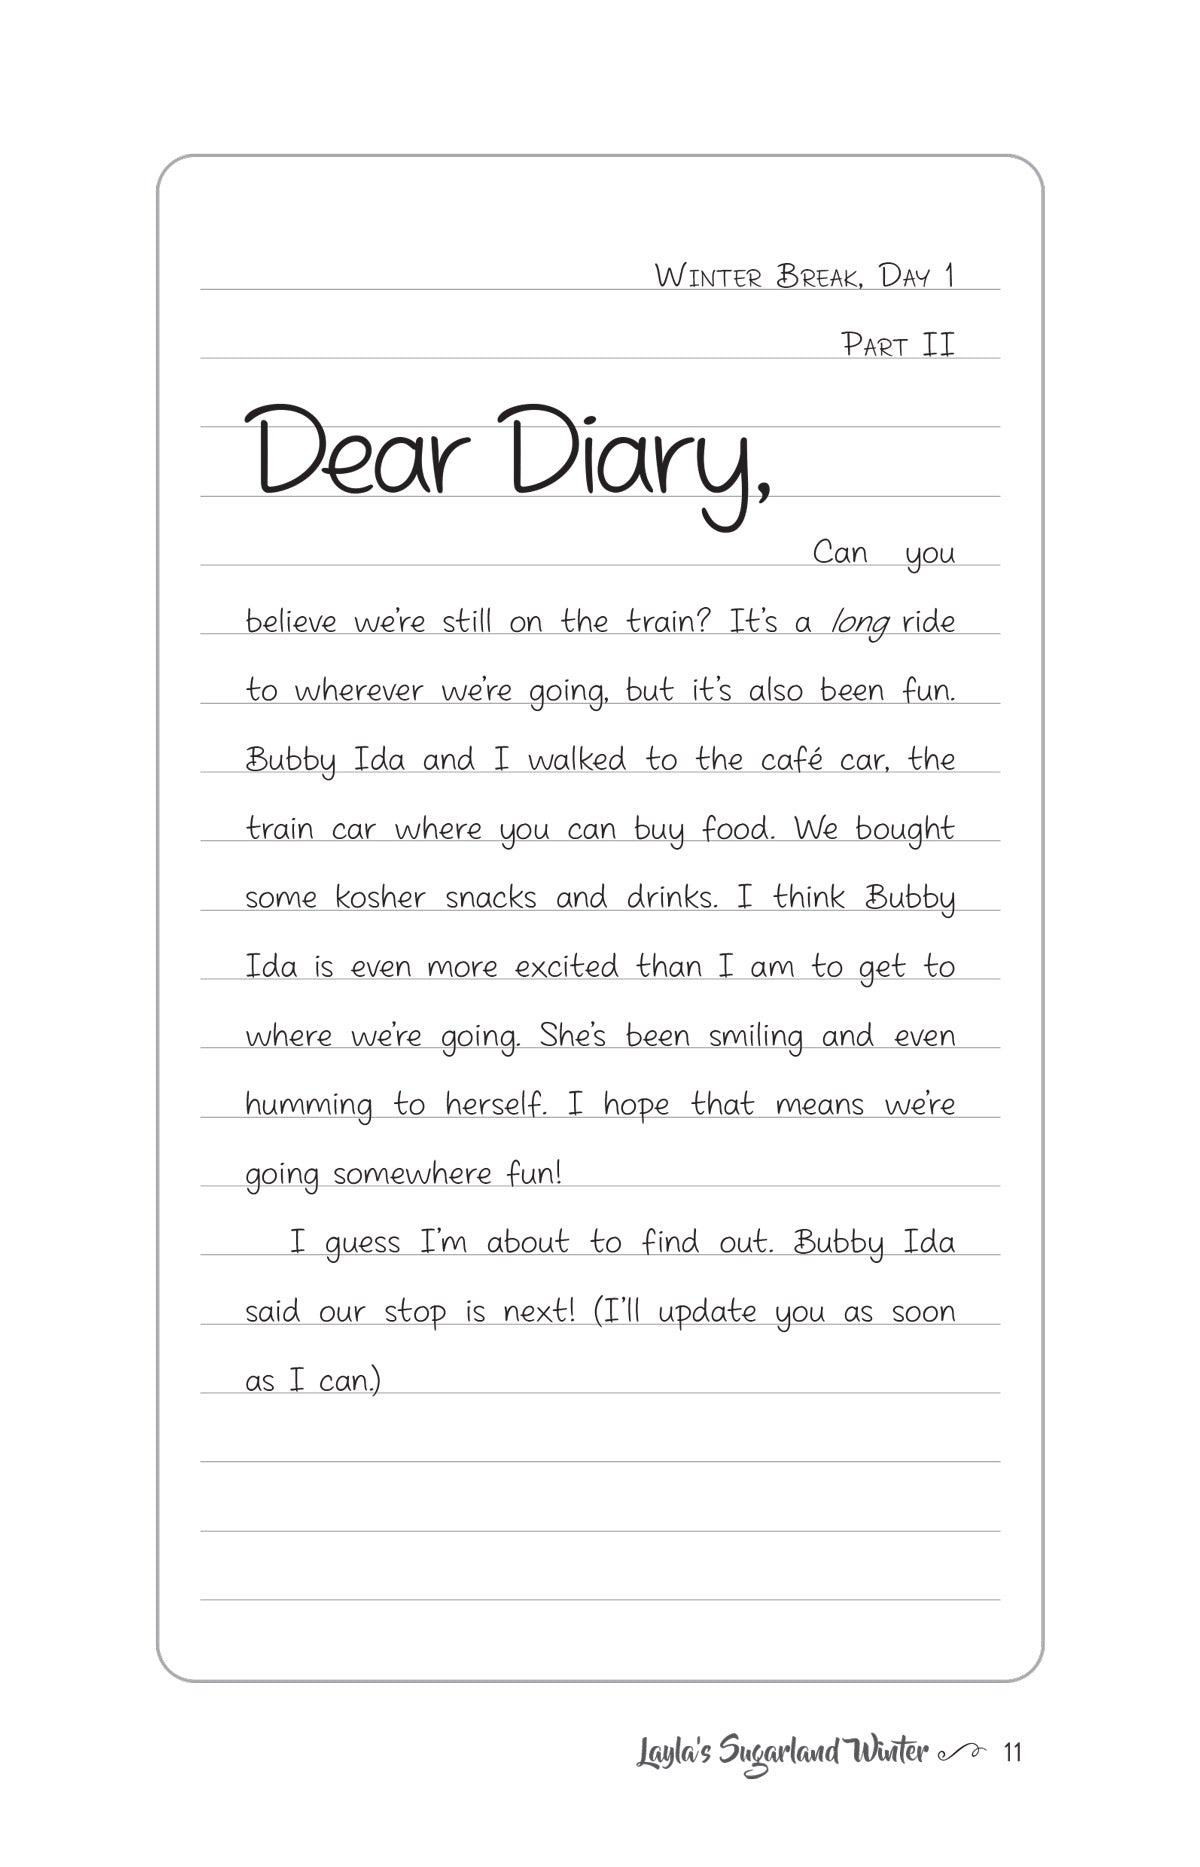 Winter Break, Day 1
Part II
Dear Diary,
Can you
believe we're still on the train? It's a long ride
to wherever we're going, but it's also been fun.
Bubby Ida and I walked to the café car, the
train car where you can buy food. We bought
some kosher snacks and drinks. I think Bubby
Ida is even more excited than I am to get to
where we're going. She's been smiling and even
humming to herself. I hope that means we're
going somewhere fun!
I guess I'm about to find out. Bubby Ida
said our stop is next! (I'll update you as soon
as I can.)
Layla's Sugarland Winter 11